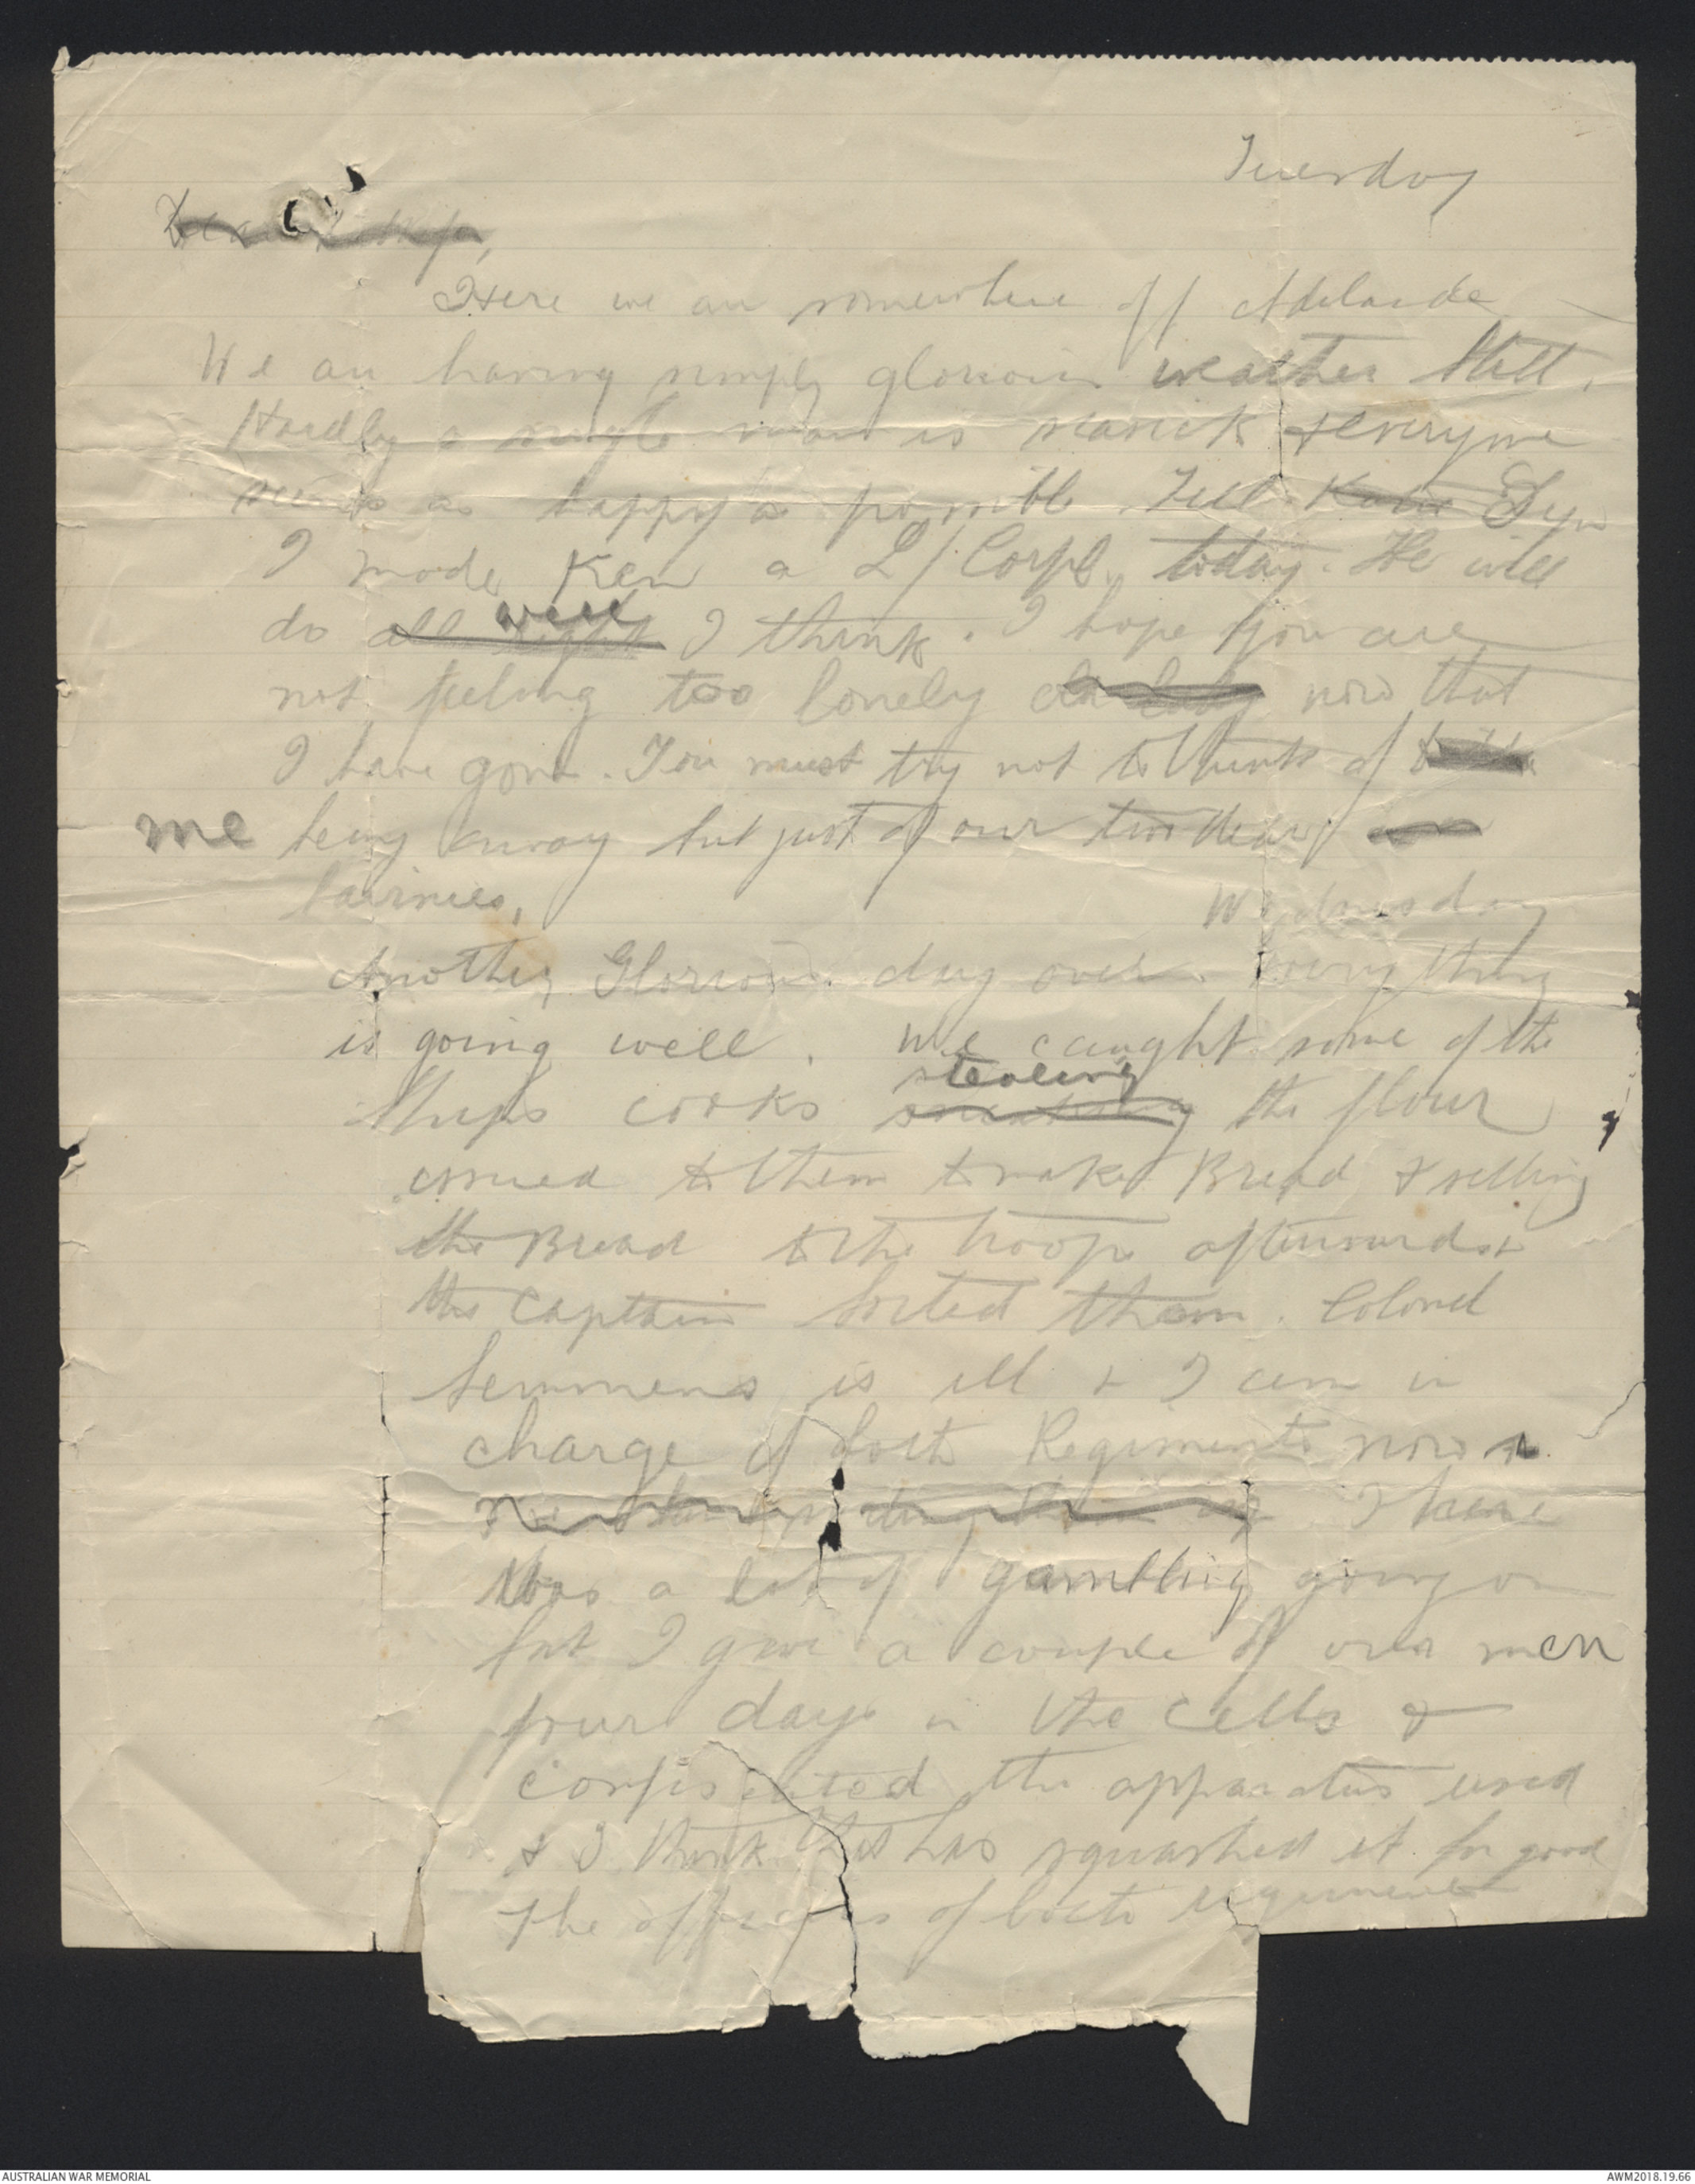 Tuesday
Here we are somewhere off Adelaide
We are having simply glorious weather still.
Hardly a single man is seasick & everyone
seems as happy as possible. Tell Syn
I made Ken a L/Corpl. today. He will
do all right well I think. I hope you are
not feeling too lonely now that
I have gone. You must try not to think of
me being away but just of our two dear
bairnies,
Wednesday
Another Glorious day over. Everything
is going well. We caught some of the
stealing
Ships cooks the flour
issued to them to make Bread & selling
the Bread to the troops afterwards &
the Captain sorted them. Colonel
Semmens is ill & I am in
charge of both Regiments now &
I have
was a lot of gambling going on
but I gave a couple of our men
four days in the cells &
confiscated the apparatus used
& I think that has squashed it for good
The officers of both regiments
AUSTRALIAN WAR MEMORIAL
AWM2018.19.66